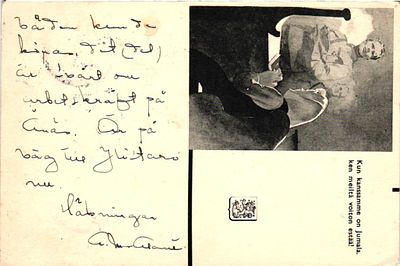 båda kunde
köpa, dit (del)
är svårt om
arbetskraft på
Är på
väg till Ylistaro
nu.
Hälsningar
Kun kansamme on Jumala,
ken meiltä voiton estää!